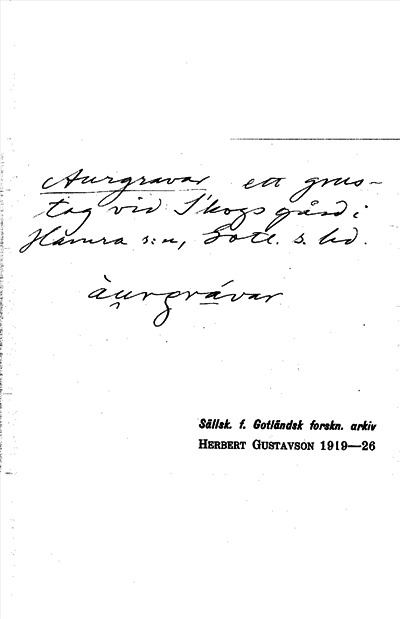 Aurgravar ett grus-
tag vid Skogs gård i
Hamra s:n, Gotl. s. hd.
àu̯rgrávar
Sällsk. f. Gotländsk forskn. arkiv
HERBERT GUSTAVSON 1919—26